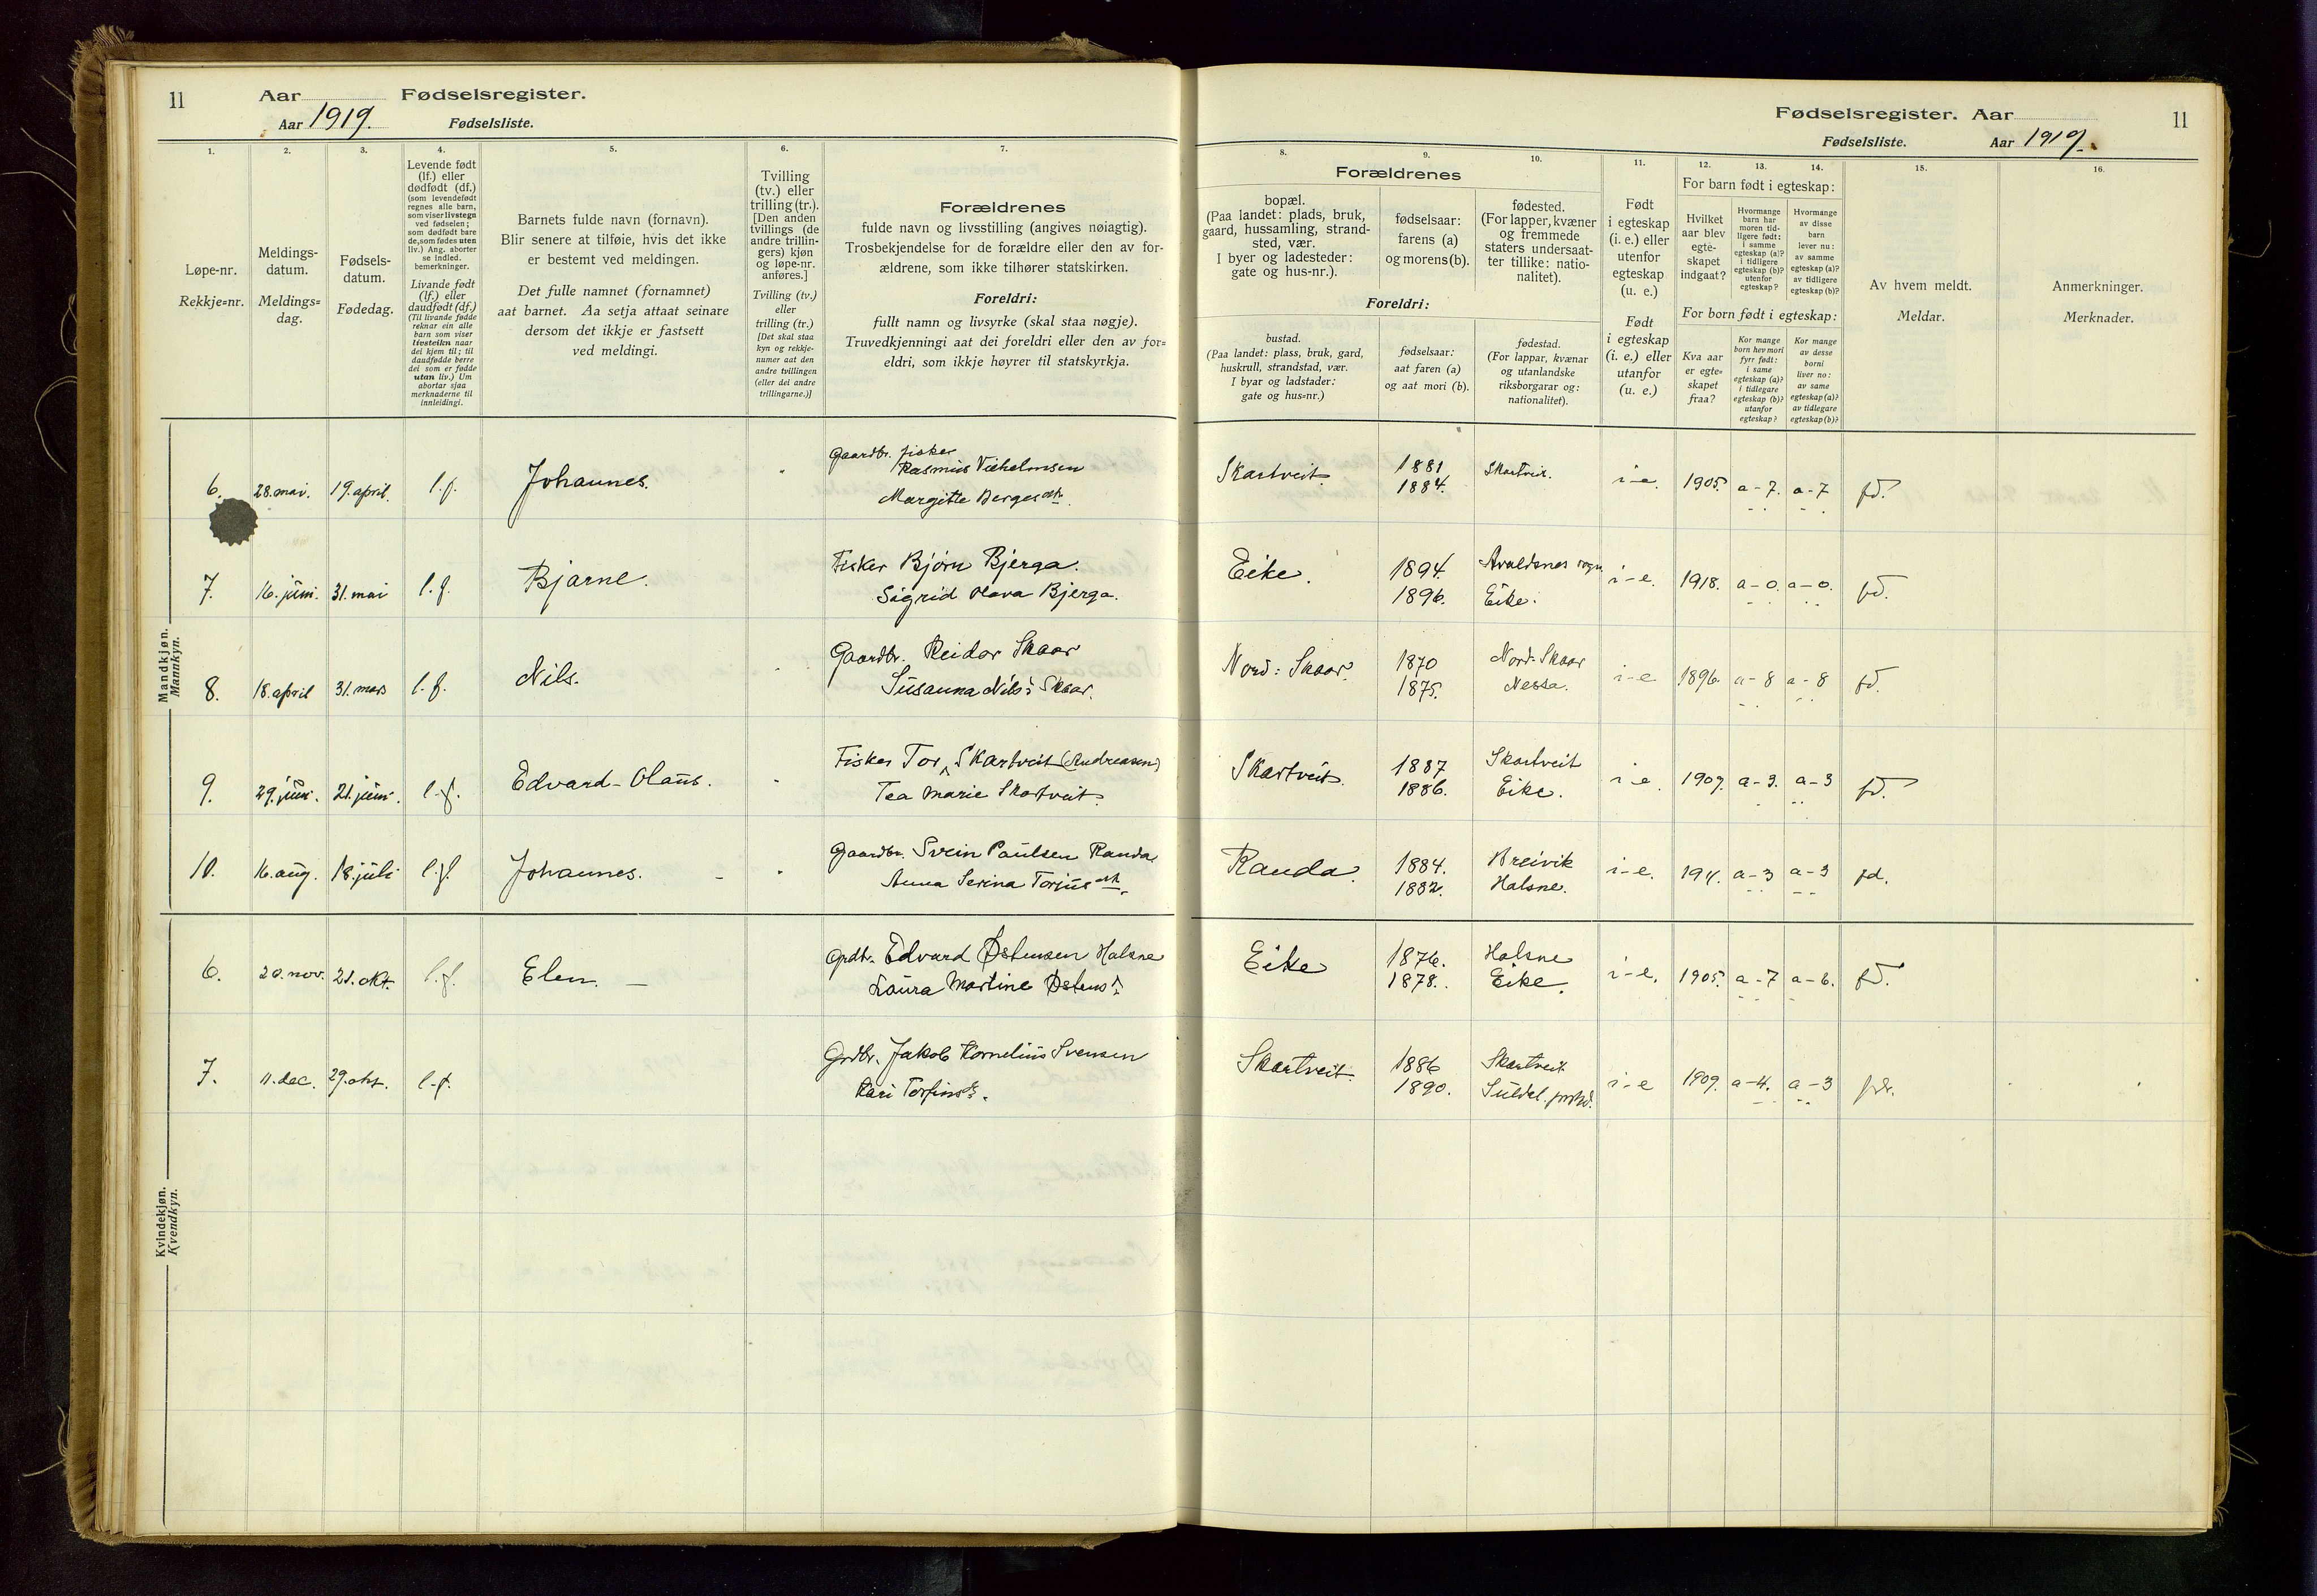 11
Aar
Fødselsregister.
Aar 1919.
Fødselsliste.
1.
2.
3.
4.
5.
6.
7.
Løpe-nr.
Rekkje=nr.
Meldings-
datum.
Meldings=
dag.
Fødsels-
datum.
Fødedag.
Levende født
(lf.) eller
dødfødt (df.)
(som levendefødt
regnes alle barn,
som viser livstegn
ved fødselen;
som dødfødt bare
de, som fødes uten
liv.) Ang. aborter
se indled.
bemerkninger.
Livande født
(lf.) eller
daudfødt (df.)
(Til livande fødde
reknar ein alle
barn som viser
livsteikn naar
dei kjem til; til
daudfødde berre
dei som er fødde
utan liv.) Um
abortar sjaa
merknaderne til
innleidingi.
Barnets fulde navn (fornavn).
Blir senere at tilføie, hvis det ikke
er bestemt ved meldingen.
Det fulle namnet (fornamnet)
aat barnet. Aa setja attaat seinare
dersom det ikkje er fastsett
ved meldingi.
Tvilling
(tv.) eller
trilling (tr.).
[Den anden
tvillings (de
andre trillin-
gers) kjøn
og løpe-nr.
anføres.]
Tvilling (tv.)
eller
trilling (tr.)
[Det skal staa
kyn og rekkje-
numer aat den
andre tvillingen
(eller dei andre
trillingarne.)]
Forældrenes
fulde navn og livsstilling (angives nøiagtig).
Trosbekjendelse for de forældre eller den av for-
ældrene, som ikke tilhører statskirken.
Foreldri:
fullt namn og livsyrke (skal staa nøgje).
Truvedkjenningi aat dei foreldri eller den av for=
eldri, som ikkje høyrer til statskyrkja.
Mandkjøn.
Mannkyn.
6. 28. mai. 19. april. l.f. Johannes.
Gaardbr. fisker
Rasmus Vilhelmsen
Margitte Berges
7. 16. juni. 31. mai l.f. Bjarne.
Fisker Bjørn Bjerga.
Sigrid Olava Bjerga.
8. 18. april 31. mars l.f. Nils.
Gaardbr. Reidar Skaar
Susanna Nils: Skaar.
9. 29. juni. 21. juni. l.f. Edvard-Olaus.
Fisker Tor Skartveit (Andreasen)
Tea Marie Skartveit.
10. 16. aug. 18. juli l.f. Johannes.
Gaardbr. Svein Paulsen Randa
Anna Serina Torjus
Kvindekjøn.
Kvendkyn.
6. 20. nov. 21. okt. l.f. Elen.
Grdb. Edvard Østensen Halsne
Laura Martine Østens
7. 11. dec. 29. okt. l.f.
Grdbr. Jakob Kornelius Svensen
Kari Torfins
Fødselsregister. Aar
11
Fødselsliste.
Aar 1919.
8.
9.
10.
11.
12.
13.
14.
15.
16.
Forældrenes
bopæl.
(Paa landet: plads, bruk,
gaard, hussamling, strand-
sted, vær.
I byer og ladesteder:
gate og hus-nr.).
fødselsaar:
farens (a)
og morens (b).
fødested.
(For lapper, kvæner
og fremmede
staters undersaat-
ter tillike: natio-
nalitet).
Foreldri:
bustad.
(Paa landet: plass, bruk, gard,
huskrull, strandstad, vær.
I byar og ladstader:
gate og hus=nr.)
fødselsaar:
aat faren (a)
og aat mori (b).
fødestad.
(For lappar, kvænar
og utanlandske
riksborgarar og:
nationalitet).
Født
i egteskap
(i. e.) eller
utenfor
egteskap
(u. e.)
Født
i egteskap
(i. e.) eller
utanfor
(u. e.)
For barn født i egteskap:
Hvilket
aar blev
egte-
skapet
indgaat?
Hvormange
barn har
moren tid-
ligere født:
i samme
egteskap (a)?
i tidligere
egteskap (b)?
utenfor
egteskap?
Hvormange
av disse
barn
lever nu:
av samme
egteskap (a)?
av tidligere
egteskap (b)?
For born født i egteskap:
Kva aar
er egte=
skapet
fraa?
Kor mange
born hev mori
fyrr født:
i same
egteskap (a)?
i tidlegare
egteskap (b)?
utanfor
egteskap?
Kor mange
av desse
borni
liver no:
av same
egteskap (a)?
av tidlegare
egteskap (b)?
Av hvem meldt.
Meldar.
Anmerkninger.
Merknader.
Skartveit. 1881 Skartveit. i-e. 1905. a-7. a-7 fd.
1884.
Eike. 1894. Avaldsnes sogn i-e. 1918. a-0. a-0. fd.
1896. Eike.
Nord: Skaar. 1870 Nord-Skaar i-e 1896. a-8 a-8 fd.
1875. Nessa.
Skartveit. 1887 Skartveit i-e. 1907. a-3. a-3 fd.
1886. Eike.
Randa. 1884. Breivik i-e. 1911. a-3 a-3 fd.
1882. Halsne.
Eike 1876. Halsne i-e. 1905. a-7 a-6. fd.
1878. Eike.
Skartveit. 1886 Skartveit i-e 1909. a-4. a-3
1890. Suldal.